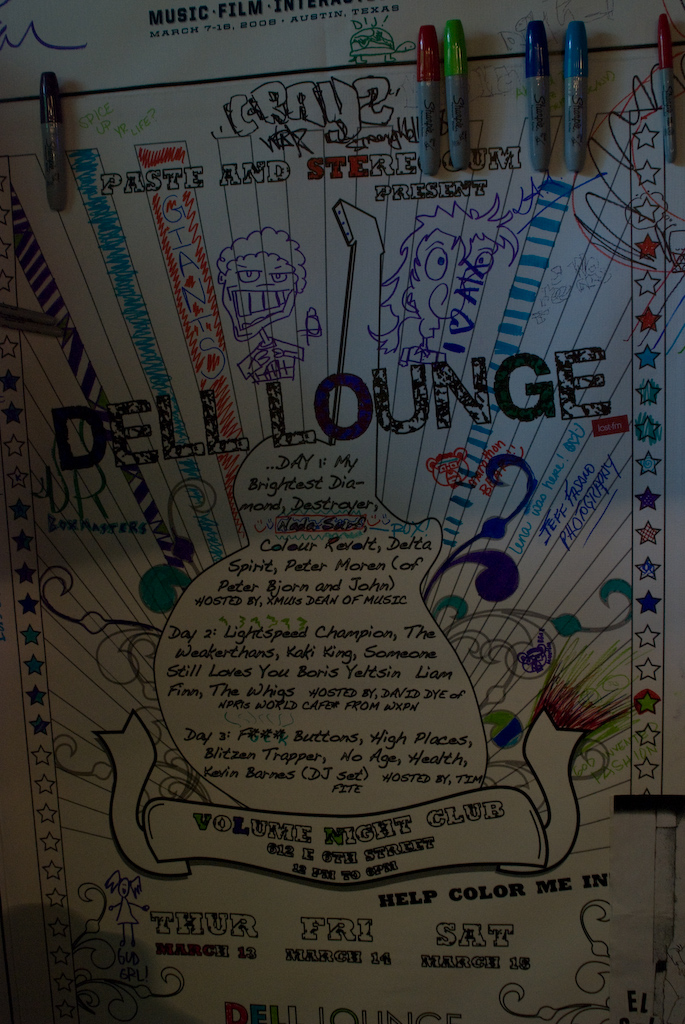 MUSIC·FILM·INTERAC
MARCH 7-16, 2008 · AUSTIN, TEXAS
SPICE
UP
YR LIFE?
CRAYZ
WAR
Stronghold
PASTE AND STEREOGUM
PRESENT
GIANCO
I ♡ ATX
DELL LOUNGE
last.fm
DR
BOXMASTERS
luna was here!
JEFF
PHOTOGRAPHY
...DAY 1: My
Brightest Dia-
mond, Destroyer,
Nada Surf
Colour Revolt, Delta
Spirit, Peter Moren (of
Peter Bjorn and John)
HOSTED BY, XMU's DEAN OF MUSIC
Day 2: Lightspeed Champion, The
Weakerthans, Kaki King, Someone
Still Loves You Boris Yeltsin Liam
Finn, The Whigs HOSTED BY, DAVID DYE of
NPR's WORLD CAFE® FROM WXPN
Day 3: F*** Buttons, High Places,
Blitzen Trapper, No Age, Health,
Kevin Barnes (DJ set) HOSTED BY, TIM
FITE
VOLUME NIGHT CLUB
612 E 6TH STREET
12 PM TO 6PM
HELP COLOR ME IN
THUR FRI SAT
MARCH 13 MARCH 14 MARCH 15
GUD
GRL!
DELL LOUNGE
EL